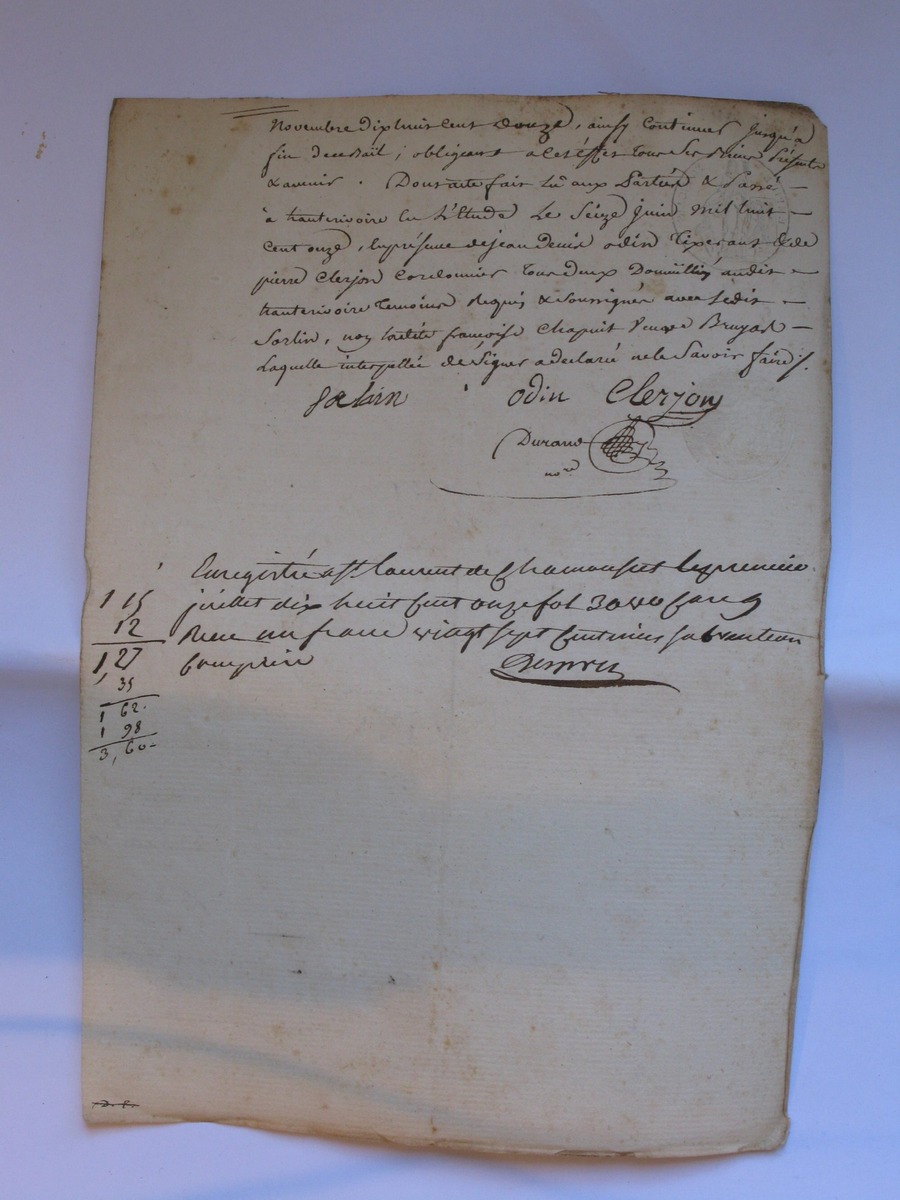 Novembre dixhuit cent douze, ainsy continuer jusqu'a
fin de ce Bail; obligeant a ces effets tous ses biens présents
& avenir. Dont acte fait lû aux Parties & Passé
à hauterivoire en L'étude Le Seize juin mil huit
cent onze, en présence de jean denis odin Tixerant & de
pierre Clerjon Cordonnier tous deux Domiciliés audit
hauterivoire temoins Requis & soussignés avec ledit
, non ladite françoise Chapuit Veuve Bruyas
Laquelle interpellée de signer a declaré ne le savoir faire /.
odin Clerjon
Durand
nore
Enregistré a St laurent de Chamousset le premier
juillet dix huit cent onze fol 30 Vo Case 9
Recu un franc vingt sept centimes subvention
comprise
1 15
12
1, 27
35
1 62.
1 98
3, 60